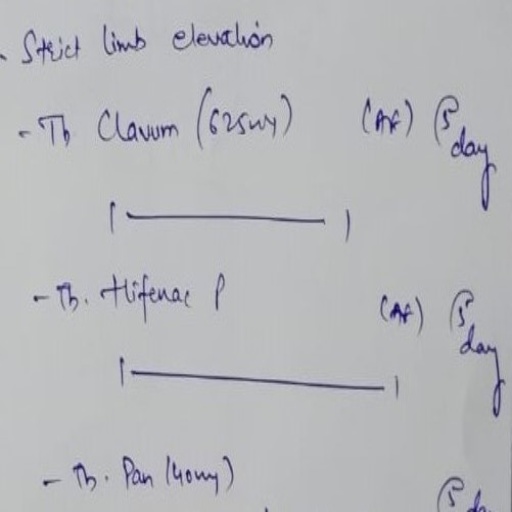 - Strict limb elevation
- Tb Clavum (625mg) (AF) (5 day
1 —— 1
- Tb. Hifenac P (AF) (5 day
1 —— 1
- Tb. Pan (40mg) (5 da